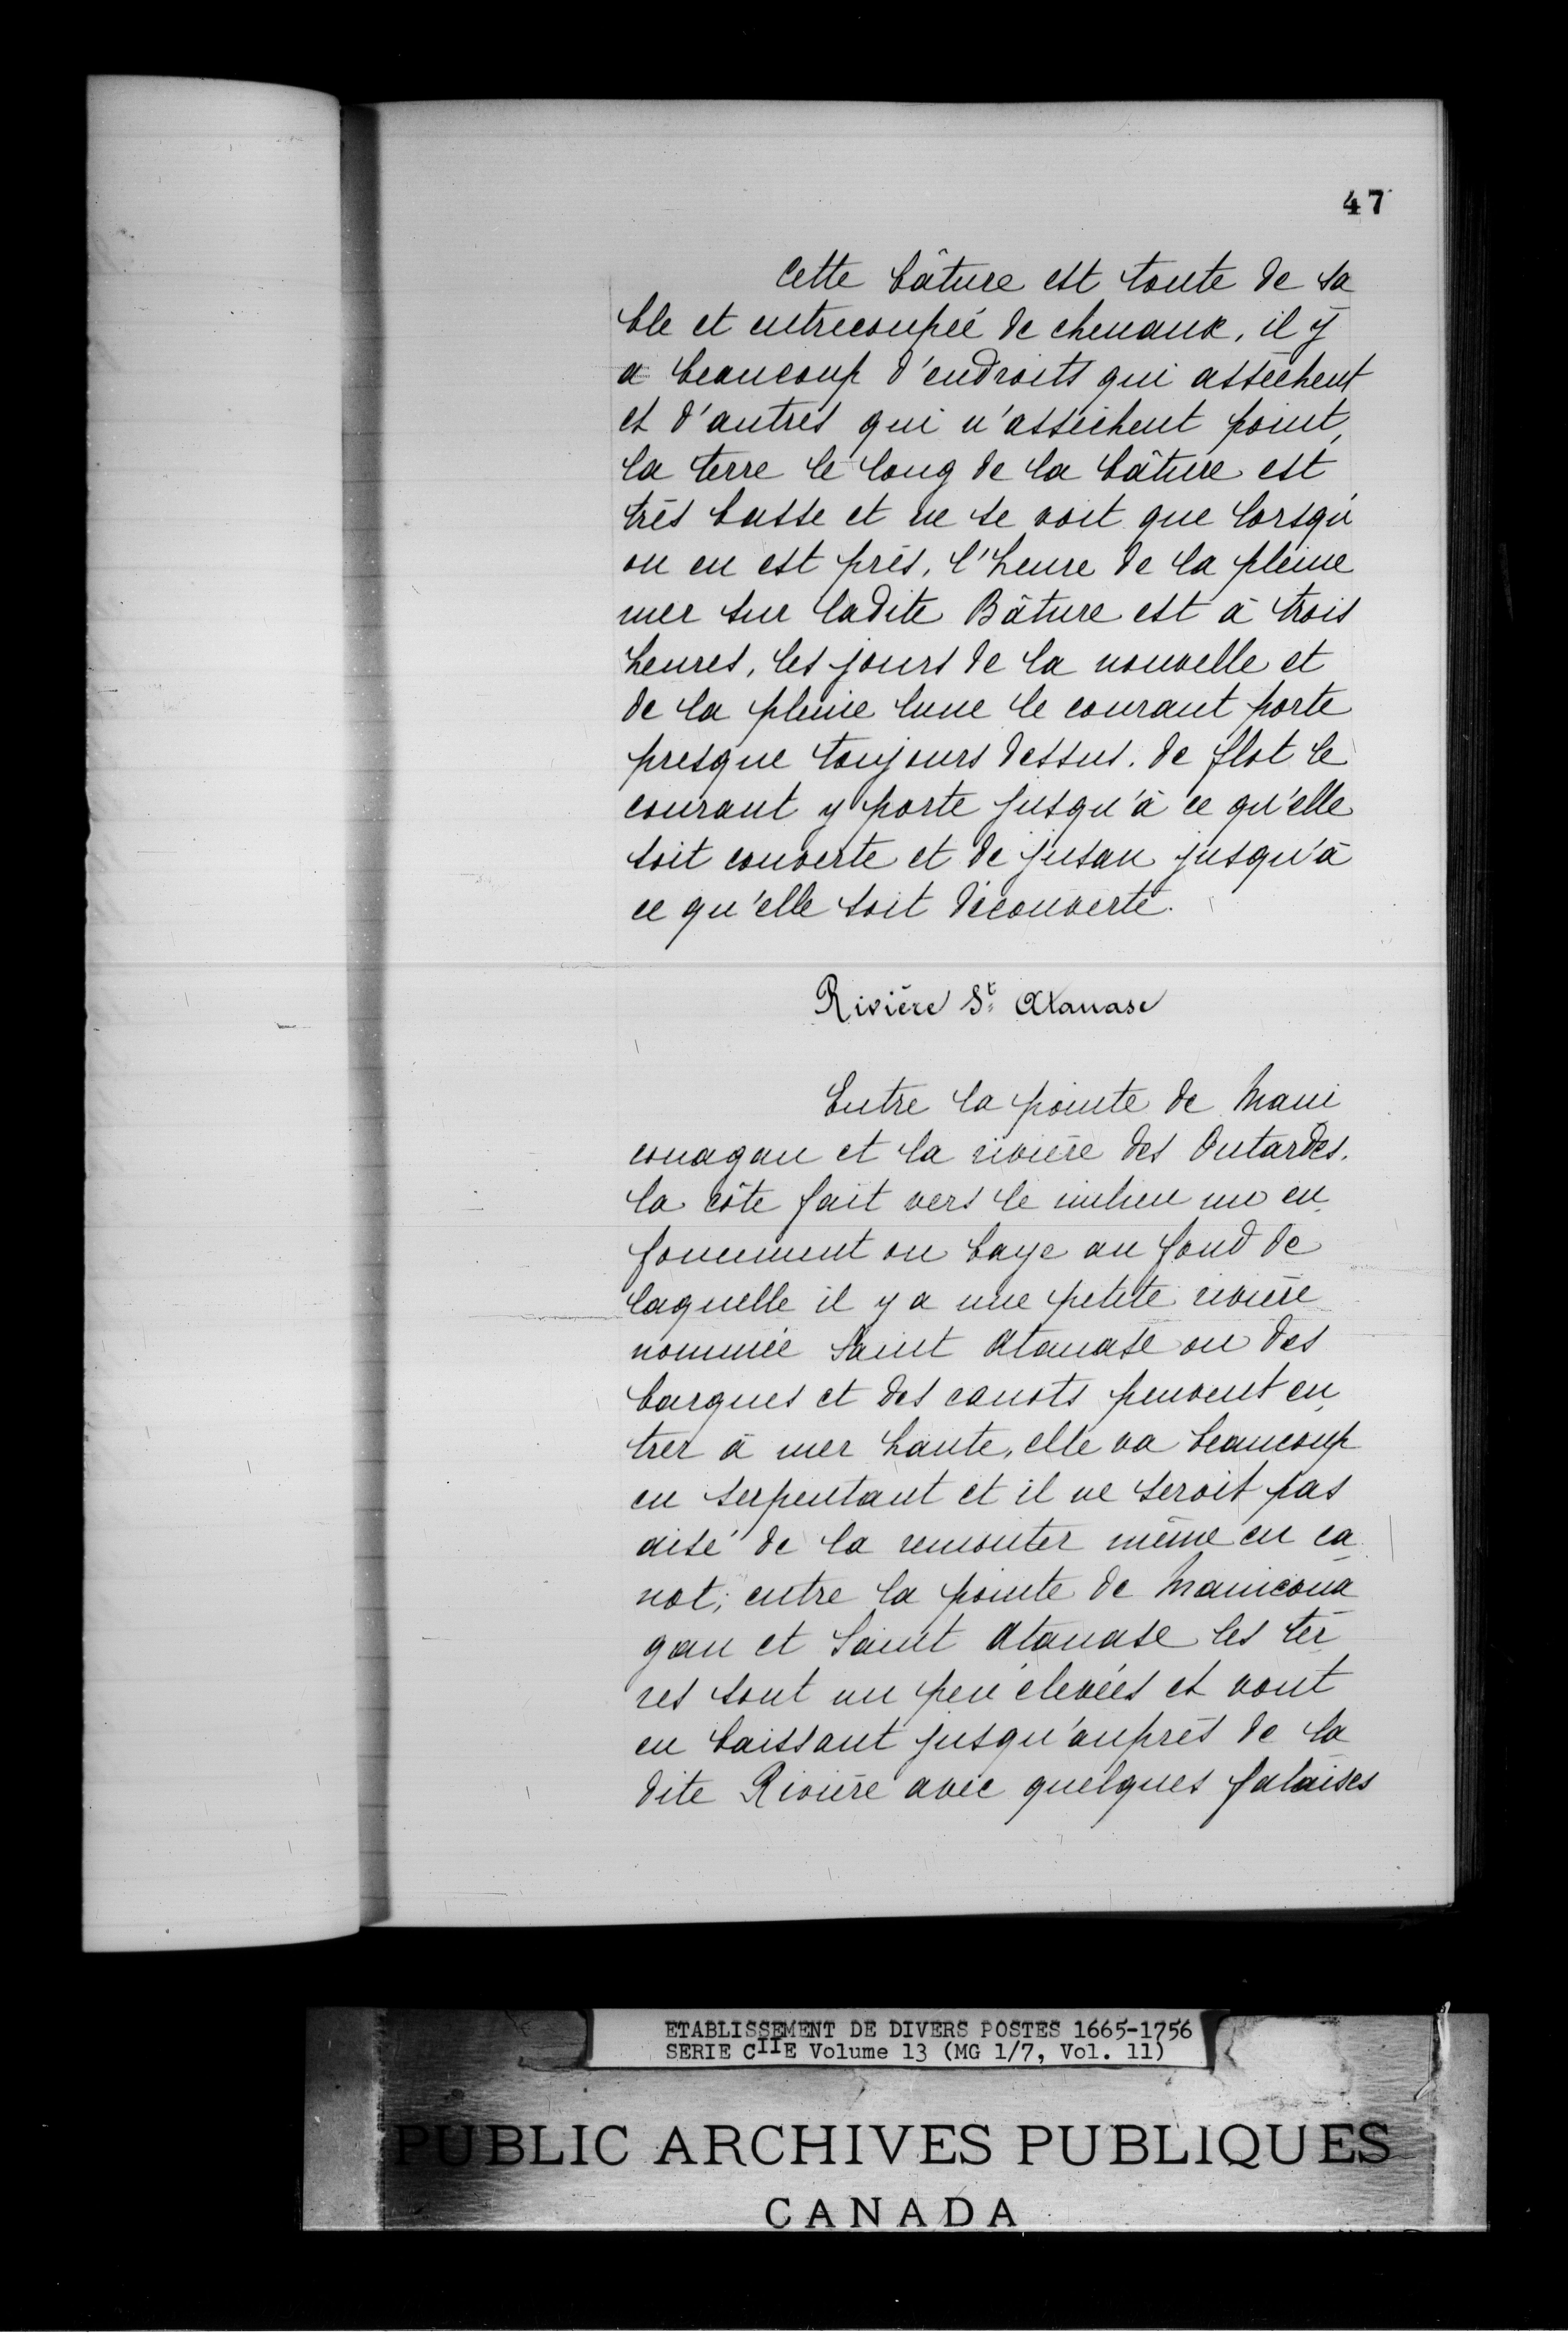 47
Cette bâture est toute de sa
ble et entrecoupée de chenaux, il y
a beaucoup d'endroits qui assèchent
et d'autres qui n'assèchent point,
la terre le long de la bâture est
très basse et ne se voit que lorsqu'
on en est près, l'heure de la pleine
mer sur ladite Bâture est à trois
heures, les jours de la nouvelle et
de la pleine lune le courant porte
presque toujours dessus. de flot le
courant y porte jusqu'à ce qu'elle
soit couverte et de jusan jusqu'à
ce qu'elle soit découverte.
Rivière St Atanase
Entre la pointe de Mani
couagan et la rivière des Outardes.
la côte fait vers le milieu un en
foncement ou baye au fond de
laquelle il y a une petite rivière
nommée Saint Atanase ou des
barques et des canots peuvent en
trer à mer haute, elle va beaucoup
en serpentant et il ne seroit pas
aisé de la remonter même en ca
not; entre la pointe de Manicoua
gan et Saint Atanase les ter
res sont un peu élevées et vont
en baissant jusqu'auprès de la
dite Rivière avec quelques falaises
ETABLISSEMENT DE DIVERS POSTES 1665-1756
SERIE CIIE Volume 13 (MG 1/7, Vol. 11)
PUBLIC ARCHIVES PUBLIQUES
CANADA